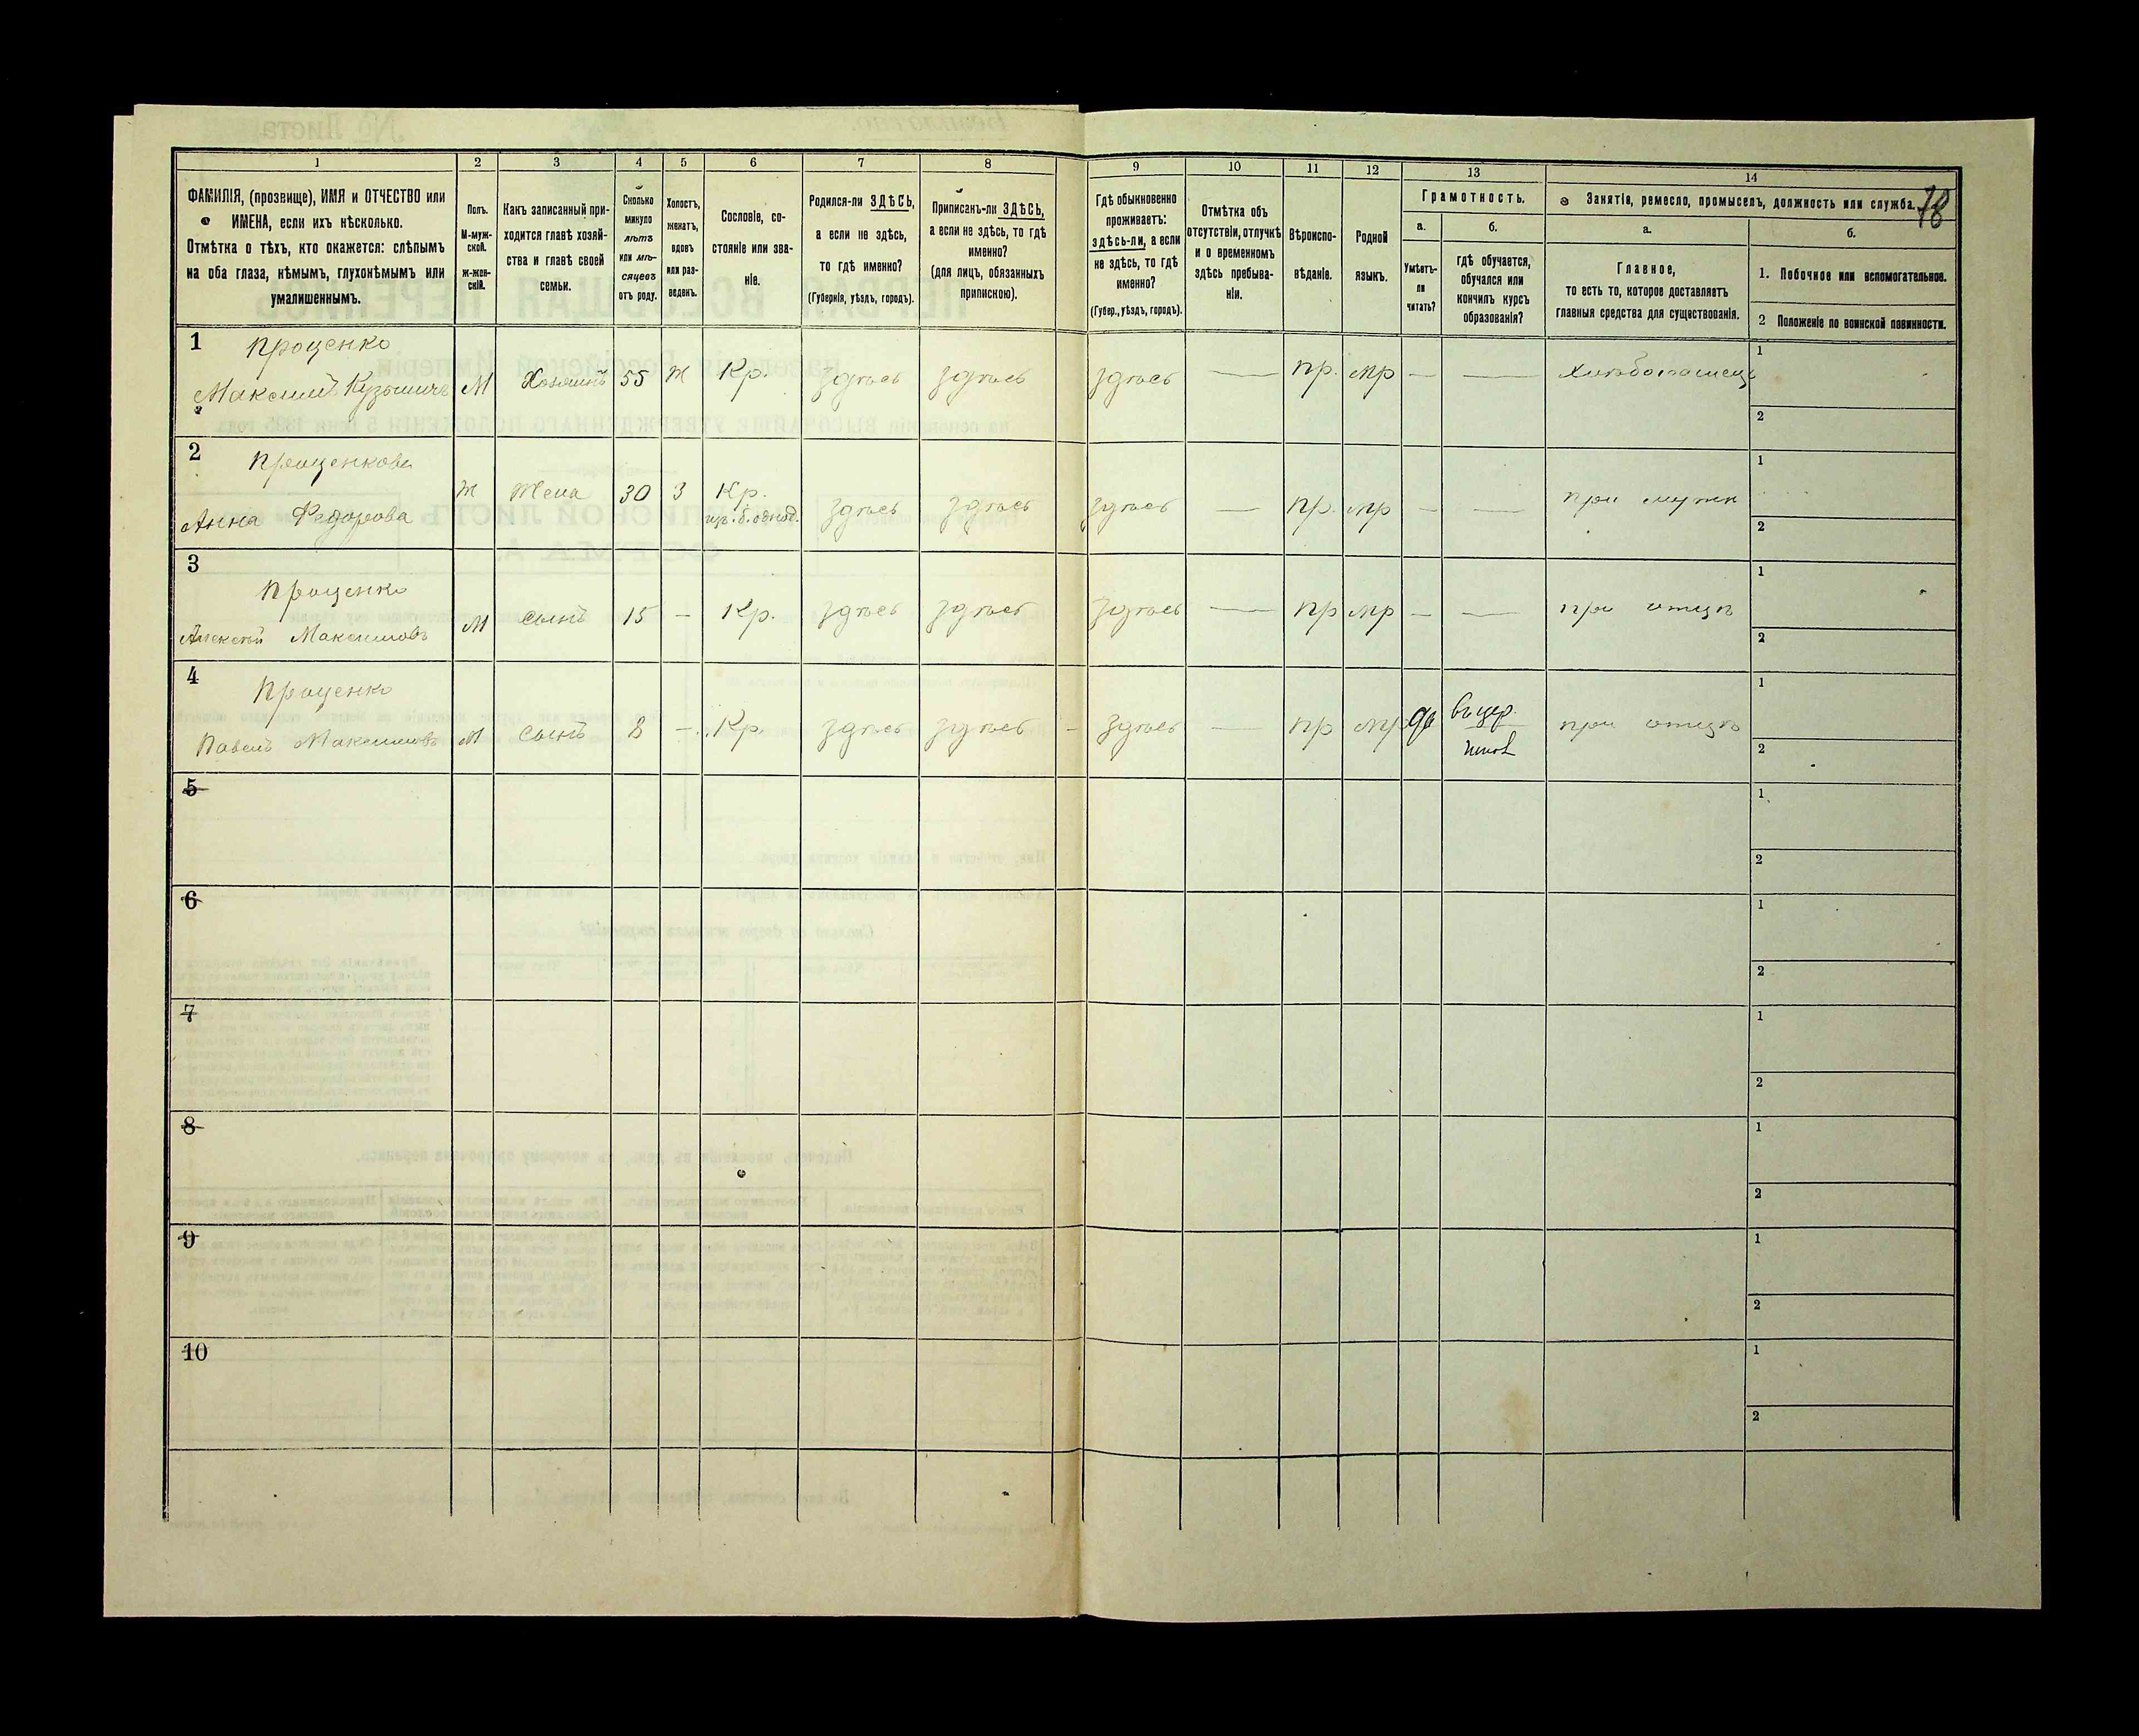 1 2 3 4 5 6 7 8 9 10 11 12 13 14
78
ФАМИЛІЯ, (прозвище), ИМЯ и ОТЧЕСТВО или
ИМЕНА, если ихъ нѣсколько.
Отмѣтка о тѣхъ, кто окажется: слѣпымъ
на оба глаза, нѣмымъ, глухонѣмымъ или
умалишеннымъ.
Полъ.
М-муж-
ской.
Ж-жен-
скій.
Какъ записанный при-
ходится главѣ хозяй-
ства и главѣ своей
семьи.
Сколько
минуло
лѣтъ
или мѣ-
сяцевъ
отъ роду.
Холостъ,
женатъ,
вдовъ
или раз-
веденъ.
Сословіе, со-
стояніе или зва-
ніе.
Родился-ли ЗДѢСЬ,
а если не здѣсь,
то гдѣ именно?
(Губернія, уѣздъ, городъ).
Приписанъ-ли ЗДѢСЬ,
а если не здѣсь, то гдѣ
именно?
(для лицъ, обязанныхъ
припискою).
Гдѣ обыкновенно
проживаетъ:
здѣсь-ли, а если
не здѣсь, то гдѣ
именно?
(Губер., уѣздъ, городъ).
Отмѣтка объ
отсутствіи, отлучкѣ
и о временномъ
здѣсь пребыва-
ніи.
Вѣроиспо-
вѣданіе.
Родной
языкъ.
Грамотность.
а.
Умѣетъ-
ли
читать?
б.
гдѣ обучается,
обучался или
кончилъ курсъ
образованія?
Занятіе, ремесло, промыселъ, должность или служба.
а.
Главное,
то есть то, которое доставляетъ
главныя средства для существованія.
б.
1. Побочное или вспомогательное.
2 Положеніе по воинской повинности.
1 Проценко
Максимъ Кузьмичъ М Хозяинъ 55 Ж Кр. здѣсь здѣсь здѣсь — пр. мр — — Хлѣбопашецъ
1
2
2 Проценкова
Анна Федорова Ж Жена 30 З Кр. здѣсь здѣсь здѣсь — пр. мр — — при мужѣ
из. б. однод.
1
2
3 Проценко
Алексѣй Максимовъ М сынъ 15 — Кр. здѣсь здѣсь здѣсь — пр мр — — при отцѣ
1
2
4 Проценко
Павелъ Максимовъ М сынъ 8 — Кр. здѣсь здѣсь здѣсь — пр мр да въ цер. при отцѣ
школѣ
1
2
5
1
2
6
1
2
7
1
2
8
1
2
9
1
2
10
1
2